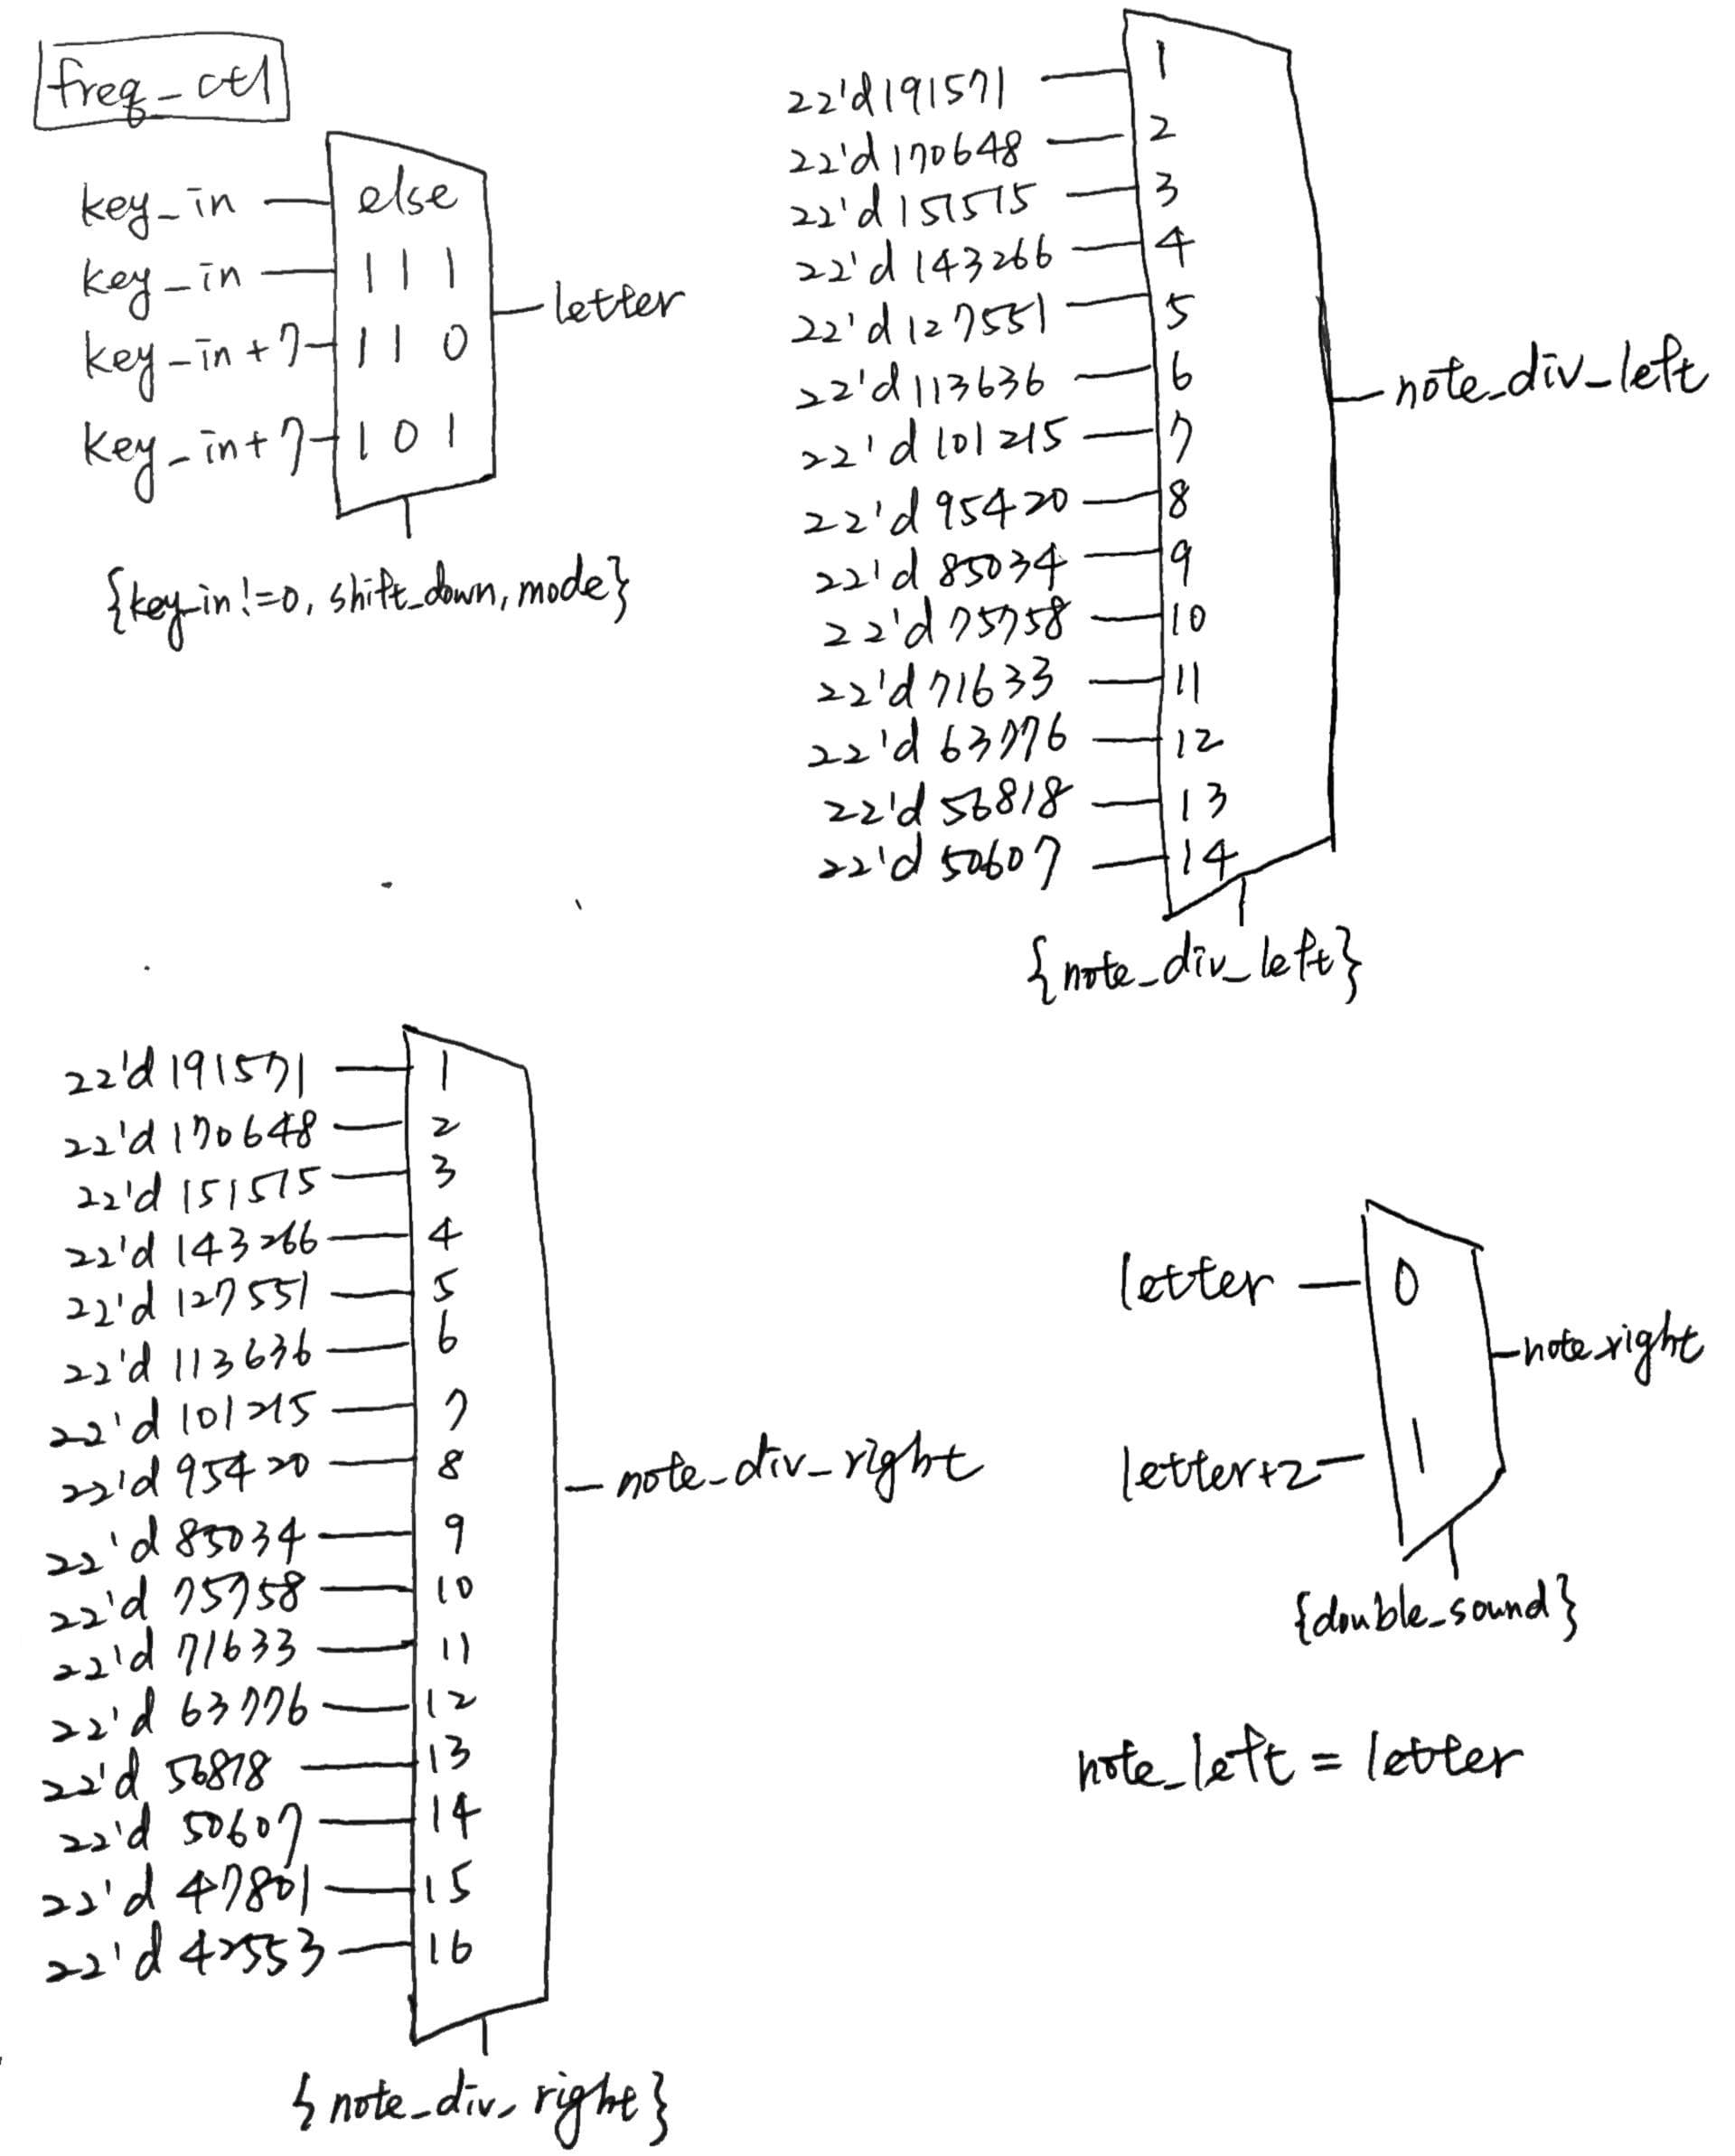 freq_ctl
key_in else
key_in 1 1 1
key_in+7 1 1 0
key_in+7 1 0 1
letter
{key_in!=0, shift_down, mode}
22'd191571 1
22'd170648 2
22'd151515 3
22'd143266 4
22'd127551 5
22'd113636 6
22'd101215 7
22'd95420 8
22'd85034 9
22'd75758 10
22'd71633 11
22'd63776 12
22'd56818 13
22'd50607 14
note_div_left
{note_div_left}
22'd191571 1
22'd170648 2
22'd151515 3
22'd143266 4
22'd127551 5
22'd113636 6
22'd101215 7
22'd95420 8
22'd85034 9
22'd75758 10
22'd71633 11
22'd63776 12
22'd56818 13
22'd50607 14
22'd47801 15
22'd42553 16
note_div_right
{note_div_right}
letter 0
letter+2 1
note_right
{double_sound}
note_left = letter